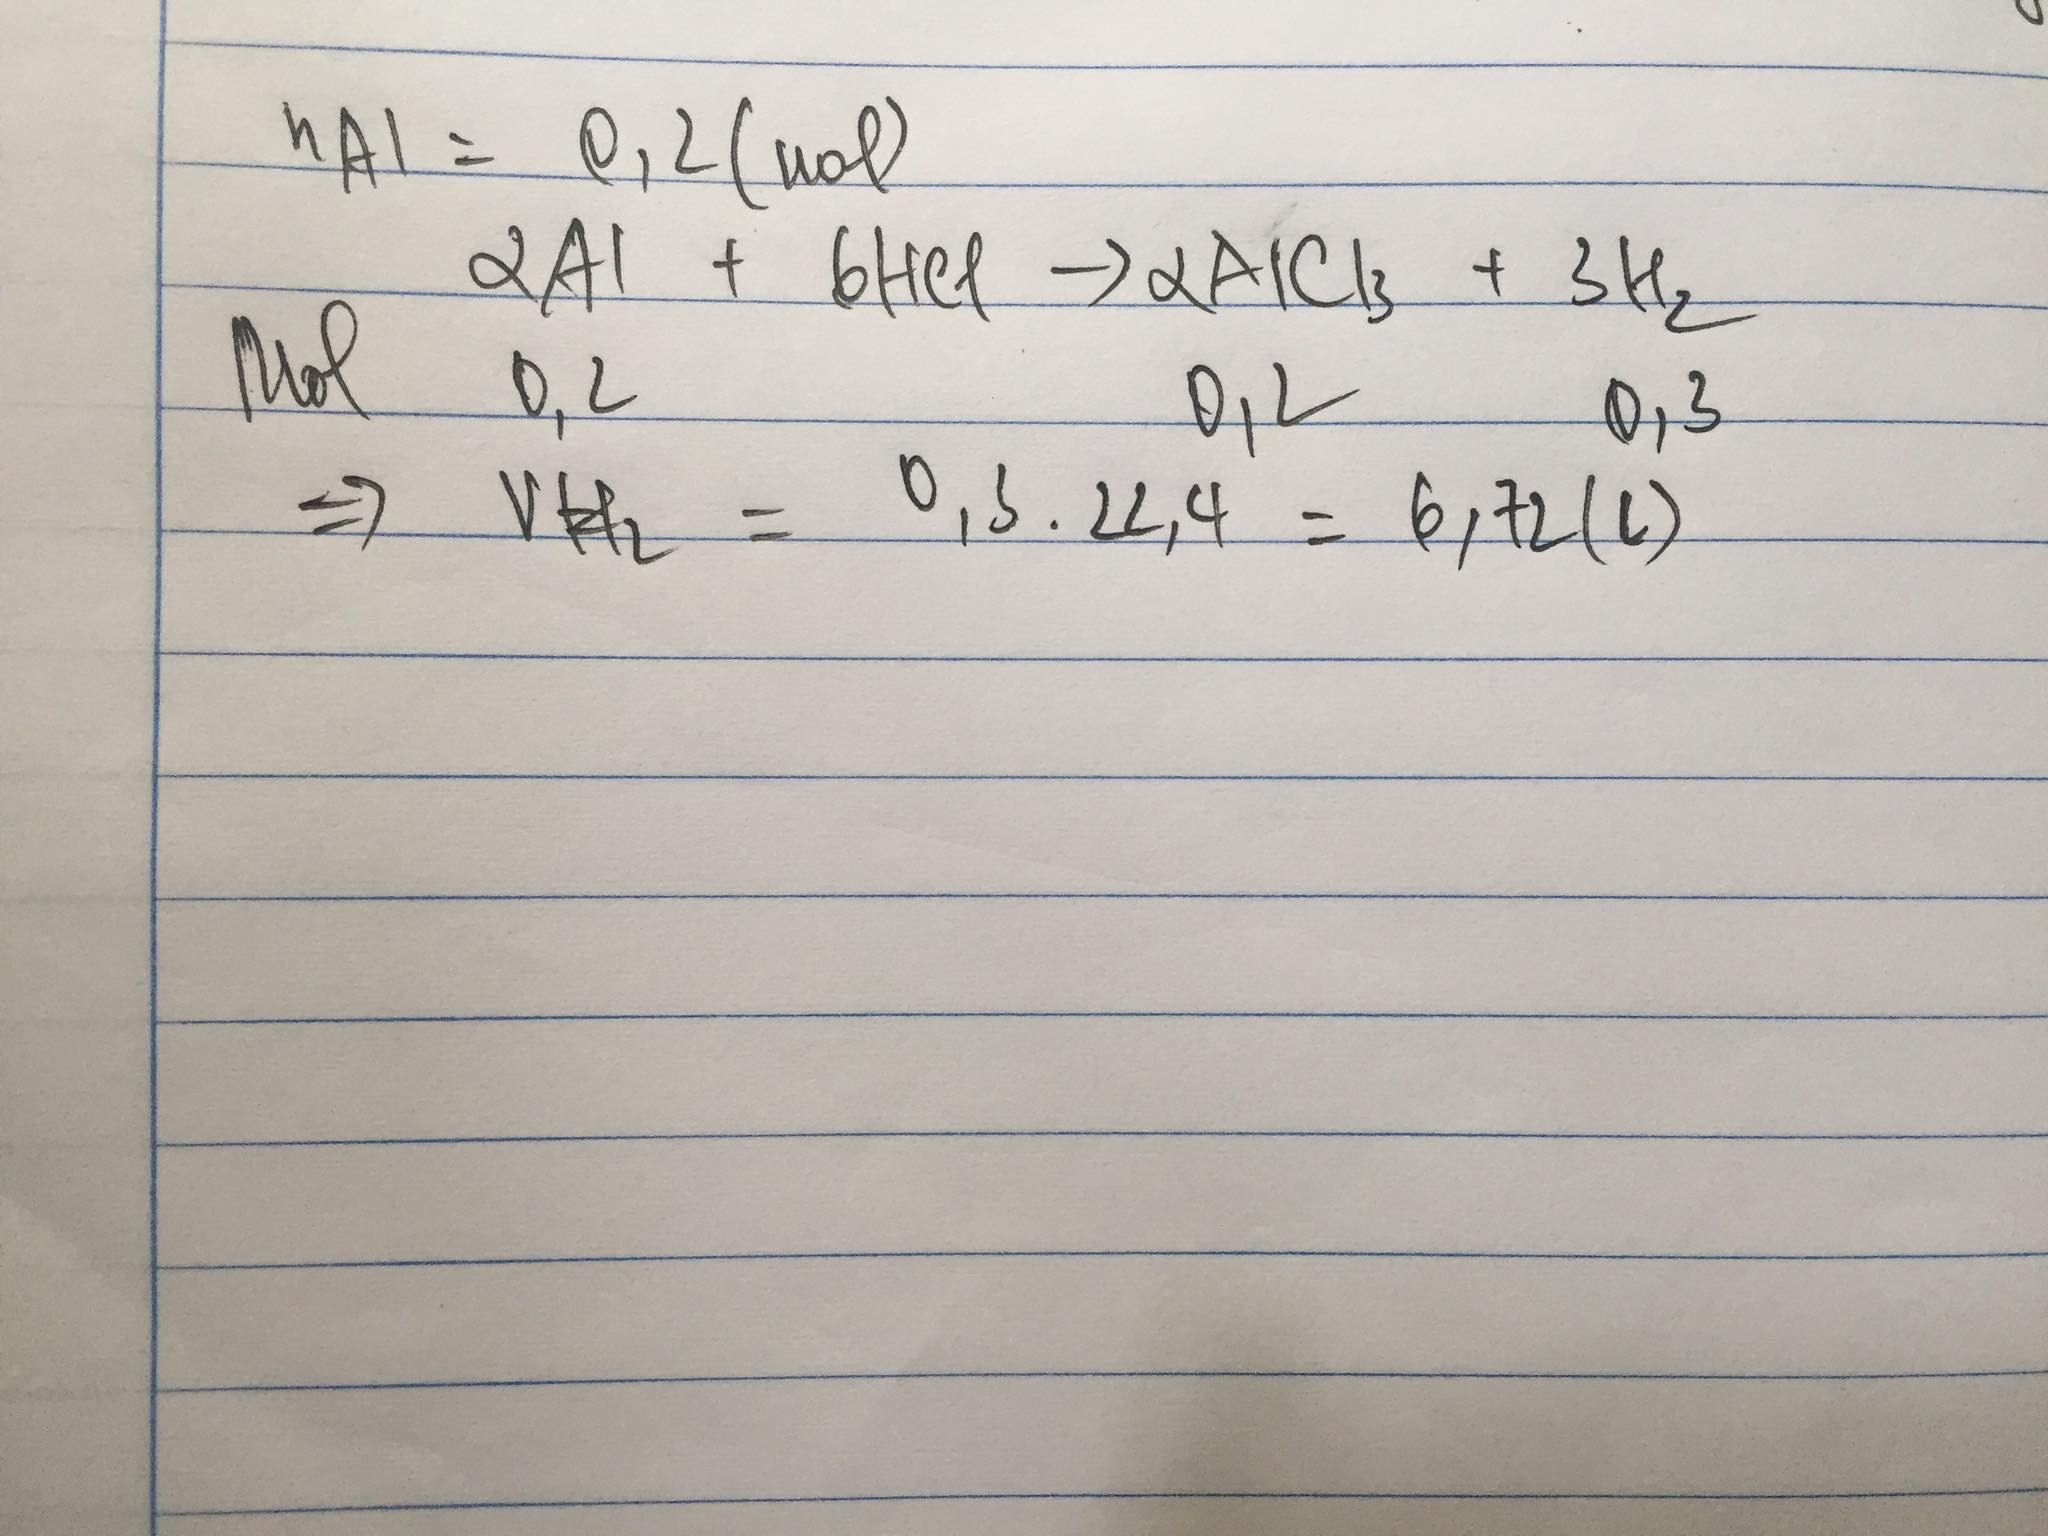 nAl = 0,2 (mol)
2Al + 6HCl → 2AlCl3 + 3H2
Mol 0,2 0,2 0,3
⇒ VH2 = 0,3 . 22,4 = 6,72 (L)